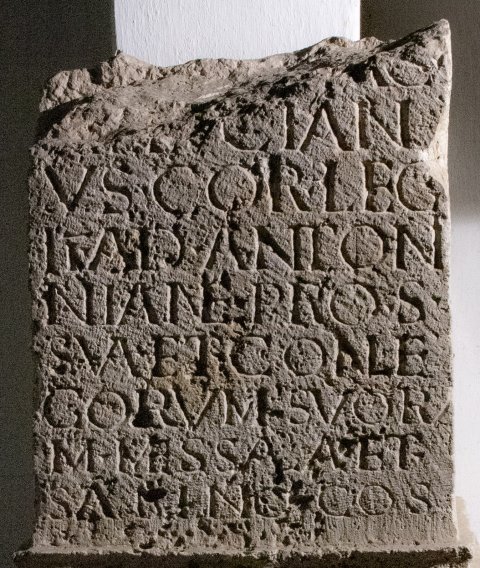 CIAN
VS COR LEG
II AD ANTON
NIAN PRO S
SVA ET CONLE
GORVM SVORV
M MESSALA ET
SABINO COS